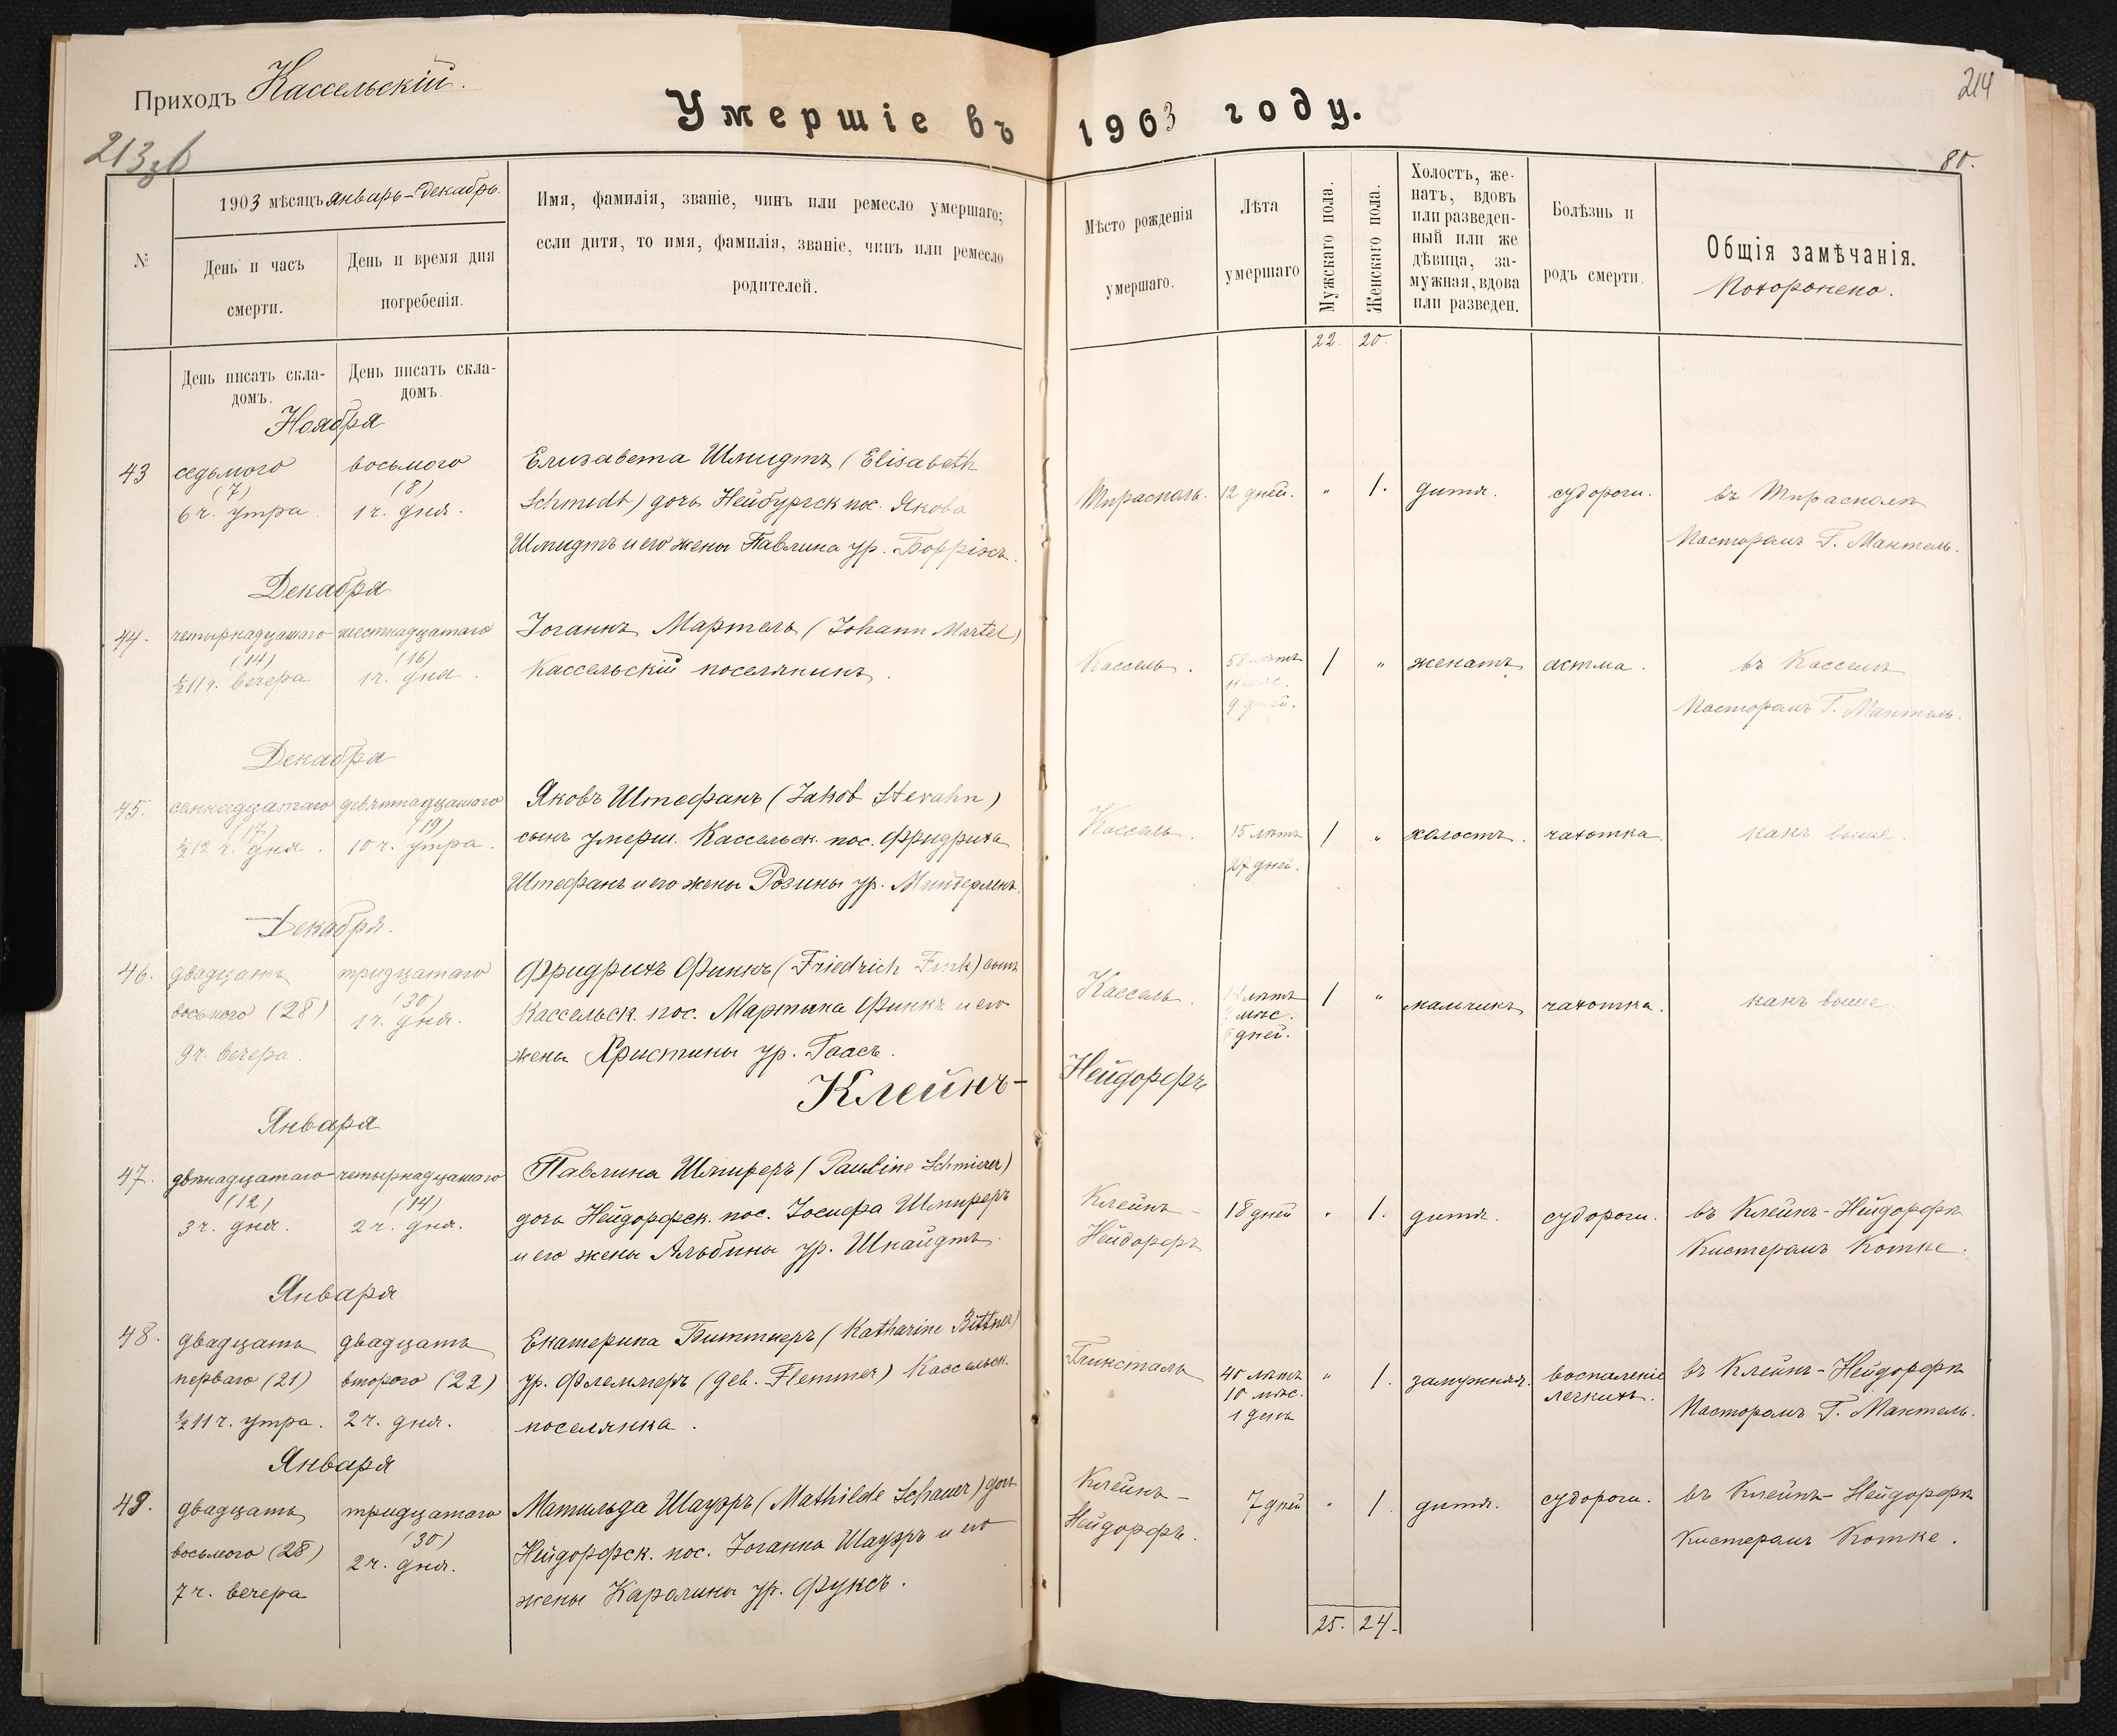 Приходъ Кассельскій.
Умершіе въ 1903 году.
214
213 об
80.
№
1903 мѣсяцъ январь-Декабрь.
День и часъ смерти.
День и время дня погребенія.
Имя, фамилія, званіе, чинъ или ремесло умершаго;
если дитя, то имя, фамилія, званіе, чинъ или ремесло
родителей.
Мѣсто рожденія
умершаго.
Лѣта
умершаго
Мужскаго пола.
Женскаго пола.
Холостъ, же-
натъ, вдовъ
или разведен-
ный или же
дѣвица, за-
мужная, вдова
или разведен.
Болѣзнь и
родъ смерти.
Общія замѣчанія.
Похоронено.
22. 20.
День писать скла-
домъ.
День писать скла-
домъ.
Ноября
43 седьмого восьмого Елизавета Шмидтъ (Elisabeth
(7) (8)
6 ч. утра 1 ч. дня. Schmidt) дочь Нейбургск пос. Якова
Шмидтъ и его жены Павлина ур.
Тирасполь. 12 дней. " 1. дитя. судороги. въ Тирасполѣ
Пасторомъ Г. Мантель.
Декабря
44. четырнадцатаго шестнадцатаго Іоганнъ Мартель (Johann Martel)
(14) (16)
½11 ч. вечера 1 ч. дня. Кассельскій поселянинъ.
Кассель. 58 лѣтъ 1 " женатъ астма. въ Касселѣ
9 дней. Пасторомъ Г. Мантель.
Декабря
45. семнадцатаго девятнадцатаго Яковъ Штефанъ (Jakob Stevahn)
(17) (19)
½12 ч. дня. 10 ч. утра. сынъ умерш. Кассельск. пос. Фридриха
Штефанъ и его жены Розины ур.
Кассель. 15 лѣтъ 1 " холостъ. чахотка. какъ выше.
27 дней.
Декабря.
46. двадцать тридцатаго Фридрихъ Финкъ (Friedrich Fink) сынъ
восьмого (28) (30)
1 ч. дня. Кассельск. пос. Мартина Финкъ и его
9 ч. вечера. жены Христины ур. Гаасъ.
Кассель. лѣтъ 1 " мальчикъ чахотка. какъ выше
мѣс.
дней.
Клейнъ-Нейдорфъ
Января
47. двѣнадцатаго четырнадцатаго Павлина Шмиреръ (Pauline Schmierer)
(12) (14)
3 ч. дня. 2 ч. дня. дочь Нейдорфск. пос. Іосифа Шмиреръ
и его жены Альбины ур. Шнайдтъ.
Клейнъ- 18 дней " 1. дитя. судороги. въ Клейнъ-Нейдорфѣ
Нейдорфъ Кистеромъ Котке.
Января
48. двадцать двадцать Екатерина Биттнеръ (Katharine Bittner)
перваго (21) второго (22) ур. Флеммеръ (geb. Flemmer) Кассельск.
½11 ч. утра. 2 ч. дня. поселянка.
Глюксталь 40 лѣтъ " 1. замужняя. воспаленіе въ Клейнъ-Нейдорфѣ
10 мѣс. легкихъ.
1 день Пасторомъ Г. Мантель.
Января
49. двадцать тридцатаго Матильда Шауэръ (Mathilde Schauer) дочь
восьмого (28) (30)
2 ч. дня. Нейдорфск. пос. Іоганна Шауэръ и его
7 ч. вечера жены Каролины ур. Фуксъ.
Клейнъ- 7 дней " 1 дитя. судороги. въ Клейнъ-Нейдорфѣ
Нейдорфъ. Кистеромъ Котке.
25. 24.